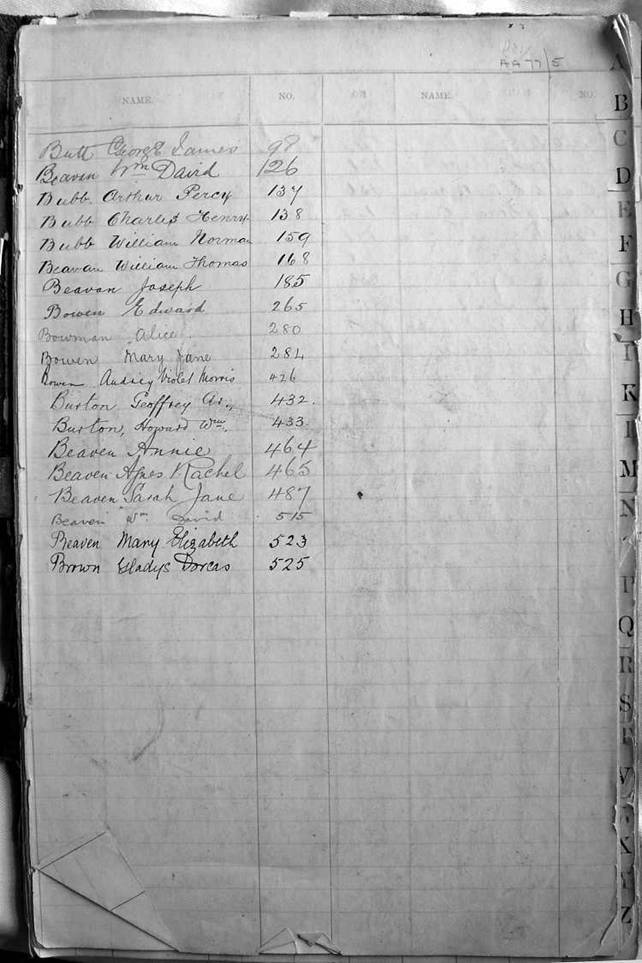 AA 77/5
NAME. NO. NAME. NO.
Butt George James 98
Beaven Wm David 126
Bubb Arthur Percy 137
Bubb Charles Henry 138
Bubb William Norman 159
Beavan William Thomas 168
Beavan Joseph 185
Bowen Edward 265
Bowman Alice 280
Bowen Mary Jane 281
Bowen Audrey Violet Morris 426
Burton Geoffrey Ar., 432.
Burton, Howard Wm. 433
Beaven Annie 464
Beaven Agnes Rachel 465
Beaven Sarah Jane 487
Beaven Wm David 515
Beaven Mary Elizabeth 523
Brown Gladys Dorcas 525
A
B
C
D
E
F
G
H
I
K
L
M
N
P
Q
R
S
T
V
X
Z